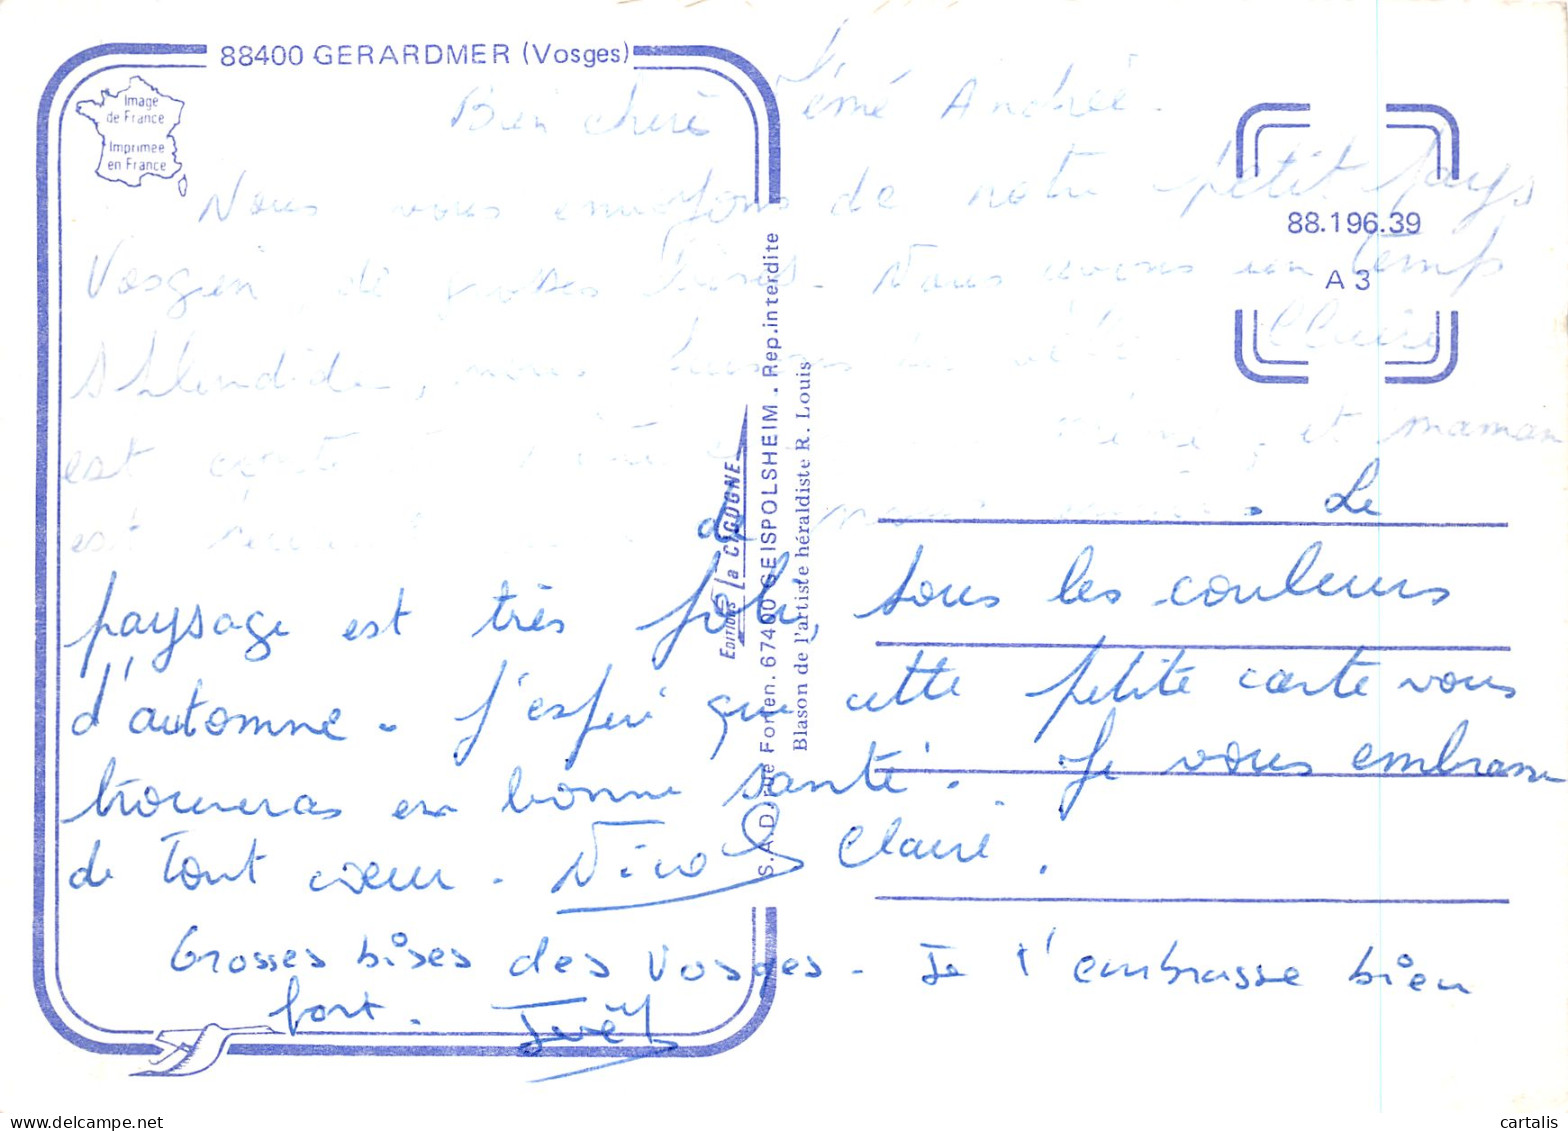 88400 GERARDMER (Vosges)
Image
de France
Imprimée
en France
Bien chère Mémé Andrée.
Nous vous envoyons de notre petit pays
Vosgien, de grosses bises. Nous avons un temps
splendide, nous faisons du vélo. Claire
est et maman
est de
. Le
paysage est très joli, sous les couleurs
d'automne. J'espère que cette petite carte vous
trouveras en bonne santé. Je vous embrasse
de tout cœur. Nicole Claire.
Grosses bises des Vosges. Je t'embrasse bien
fort.
88.196.39
A 3
EDITIONS La CIGOGNE
67400 GEISPOLSHEIM. Rep. interdite
Blason de l'artiste héraldiste R. Louis
cartalis